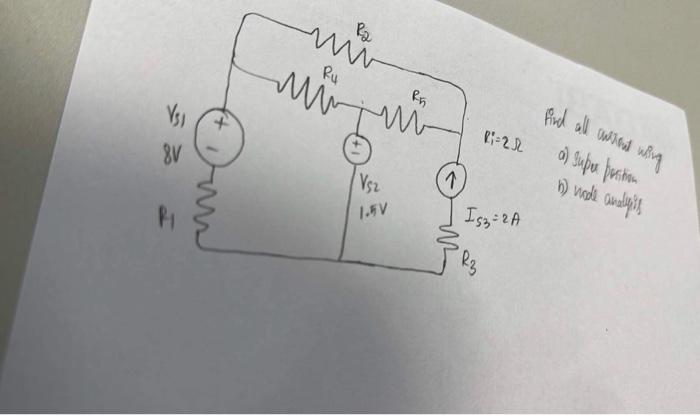 R2
R4
R5
VS1
8V
R1
VS2
1.5V
Ri=2Ω
IS3=2A
R3
Find all current using
a) super position
b) node analysis